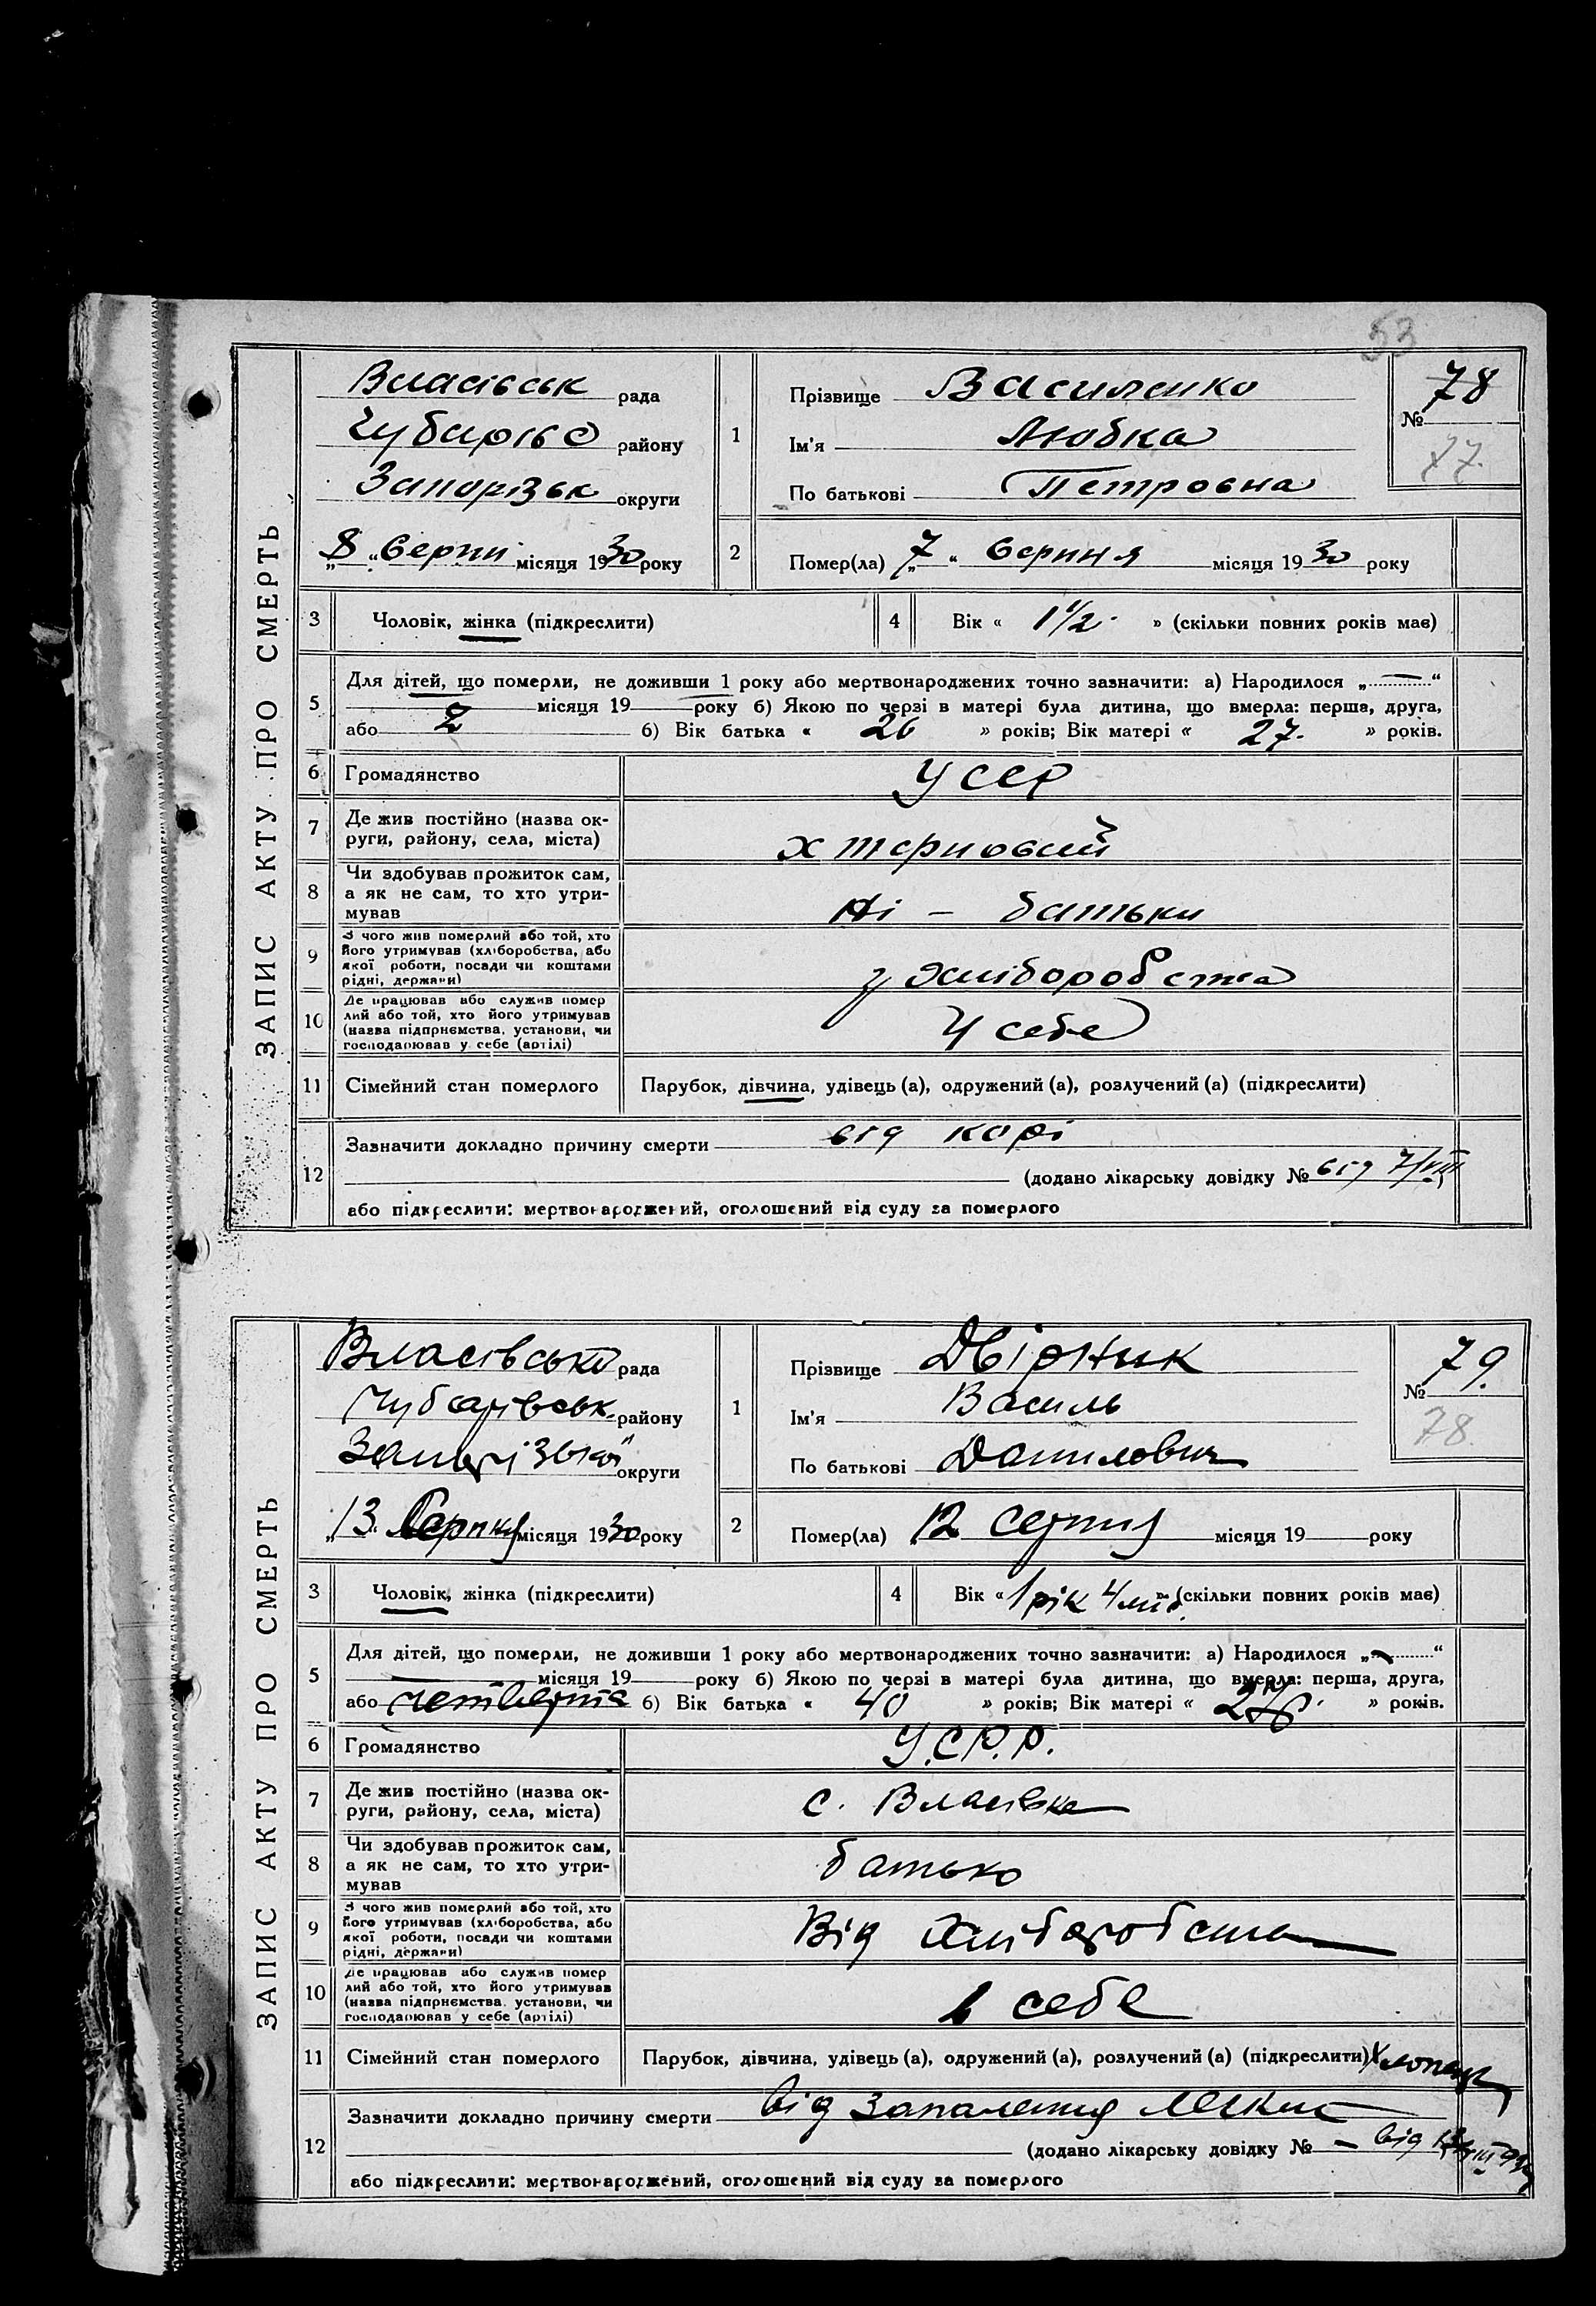 53
ЗАПИС АКТУ ПРО СМЕРТЬ
Власівськ рада
Чубарівс району
Запорізьк округи
„8“ серпн місяця 1930 року
1
Прізвище Василенко
Ім'я Любка
По батькові Петровна
№ 78
77.
2
Помер(ла) „7“ серпня місяця 1930 року
3 Чоловік, жінка (підкреслити)
4 Вік « 1 1/2 » (скільки повних років має)
5
Для дітей, що померли, не доживши 1 року або мертвонароджених точно зазначити: а) Народилося „ — “
місяця 19 року б) Якою по черзі в матері була дитина, що вмерла: перша, друга,
або 2 б) Вік батька « 26 » років; Вік матері « 27. » років.
6 Громадянство УССР
7 Де жив постійно (назва ок-
руги, району, села, міста) х терновий
8 Чи здобував прожиток сам,
а як не сам, то хто утри-
мував Ні - батьки
9 З чого жив померлий або той, хто
його утримував (хліборобства, або
якої роботи, посади чи коштами
рідні, держави) з хліборобства
10 Де працював або служив помер
лий або той, хто його утримував
(назва підприємства, установи, чи
господарював у себе (артілі) У себе
11 Сімейний стан померлого Парубок, дівчина, удівець (а), одружений (а), розлучений (а) (підкреслити)
12 Зазначити докладно причину смерти від корі
(додано лікарську довідку № від 7/VIII)
або підкреслити: мертвонароджений, оголошений від суду за померлого
ЗАПИС АКТУ ПРО СМЕРТЬ
Власівсько рада
Чубарівськ. району
Запорізької округи
„13“ Серпня місяця 1930 року
1
Прізвище Двірник
Ім'я Василь
По батькові Данилович
№ 79.
78.
2
Помер(ла) 12 серпня місяця 19 року
3 Чоловік, жінка (підкреслити)
4 Вік « 1 рік 4 міс. » (скільки повних років має)
5
Для дітей, що померли, не доживши 1 року або мертвонароджених точно зазначити: а) Народилося „ — “
місяця 19 року б) Якою по черзі в матері була дитина, що вмерла: перша, друга,
або четверта б) Вік батька « 40 » років; Вік матері « » років.
6 Громадянство У.С.Р.Р.
7 Де жив постійно (назва ок-
руги, району, села, міста) с. Власівка
8 Чи здобував прожиток сам,
а як не сам, то хто утри-
мував батько
9 З чого жив померлий або той, хто
його утримував (хліборобства, або
якої роботи, посади чи коштами
рідні, держави) Від хліборобства
10 Де працював або служив помер
лий або той, хто його утримував
(назва підприємства, установи, чи
господарював у себе (артілі) в себе
11 Сімейний стан померлого Парубок, дівчина, удівець (а), одружений (а), розлучений (а) (підкреслити) хлопець
12 Зазначити докладно причину смерти від запалення легких
(додано лікарську довідку № — від
або підкреслити: мертвонароджений, оголошений від суду за померлого